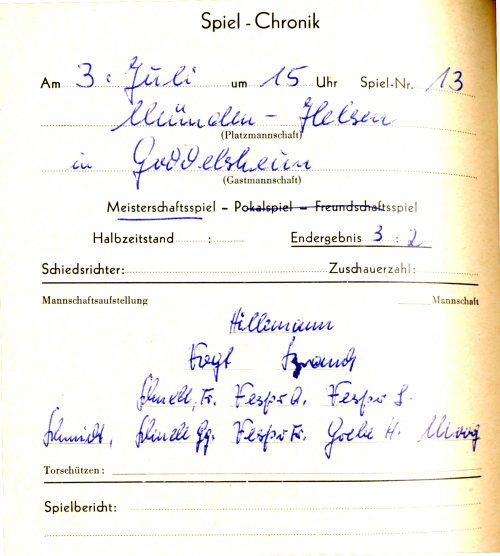 Spiel - Chronik
Am 3. Juli um 15 Uhr Spiel-Nr. 13
Münden - Helsen
(Platzmannschaft)
in Goddelsheim
(Gastmannschaft)
Meisterschaftsspiel – Pokalspiel – Freundschaftsspiel
Halbzeitstand : Endergebnis 3 : 2
Schiedsrichter: Zuschauerzahl:
Mannschaftsaufstellung Mannschaft
Hillemann
Vogt Brand
Schnell, Fr. Vesper A. Vesper S.
Schmidt, Schnell Gg. Vesper Fr. H. Moog
Torschützen:
Spielbericht: